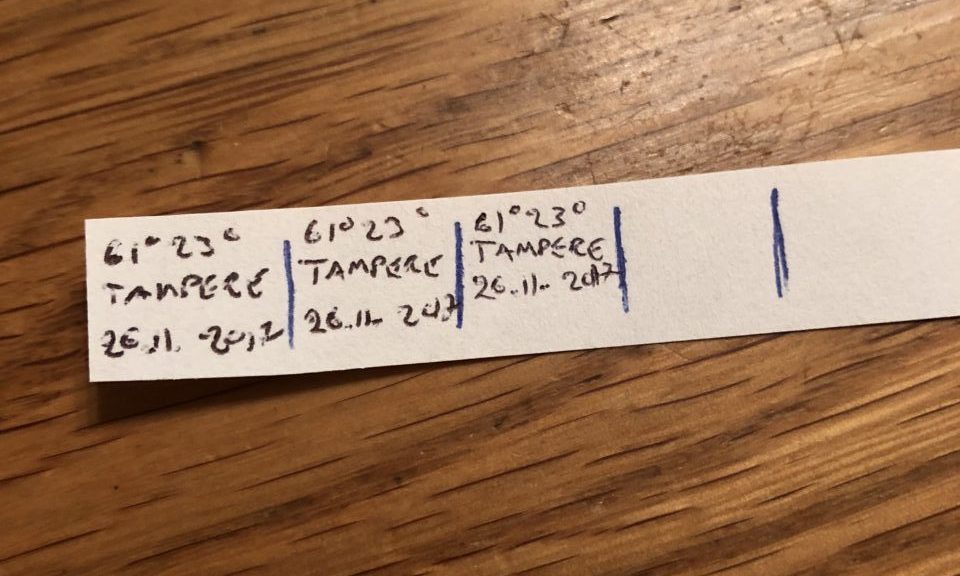 61° 23°
TAMPERE
26.11. 2017
61° 23°
TAMPERE
26.11. 2017
61° 23°
TAMPERE
26.11. 2017